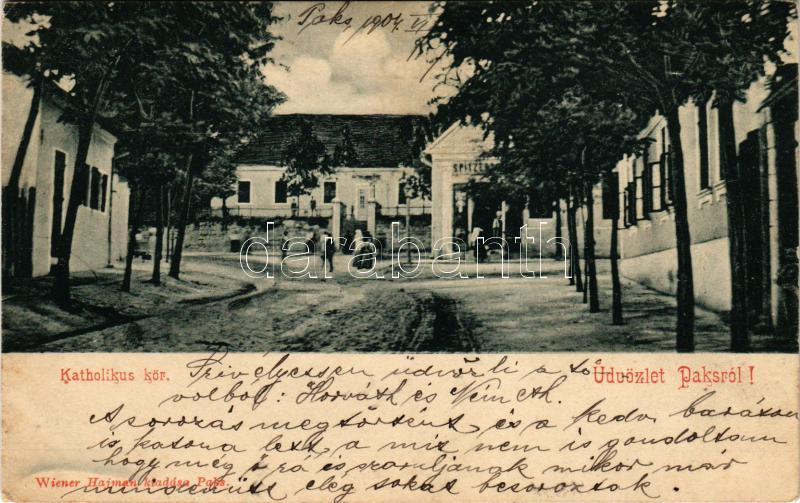 Paks, 1904. VI
SPITZER
darabanth
Katholikus kör.
Üdvözlet Paksról !
Szivélyesen üdvözli a tá-
volból: Horváth és Németh.
A sorozás megtörtént, és a kedv. barátom
is katona lett, a mit nem is gondoltam
hogy még ő rá is szoruljanak mikor már
mindenütt elég sokat besoroztak.
Wiener Hajman kiadása Paks.